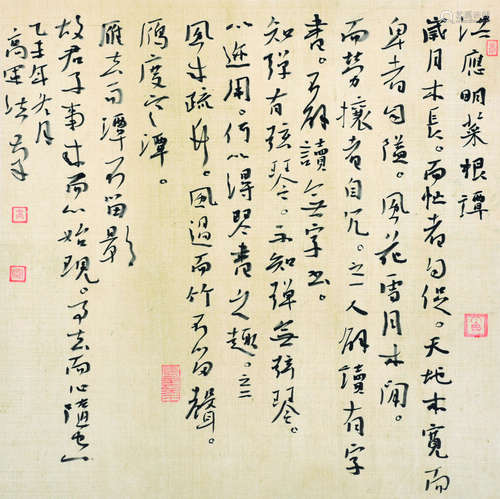 洪應明菜根譚
歲月本長。而忙者自促。天地本寬而
卑者自隘。風花雪月本閒。
而勞攘者自冗。之一人解讀有字
書。不解讀無字書。
知彈有弦琴。不知彈無弦琴。
以迹用。何以得琴書之趣。之二
風來疏竹。風過而竹不留聲。
鴈度寒潭。
雁去而潭不留影
故君子事來而心始現。事去而心隨空
乙未年冬月
高軍法